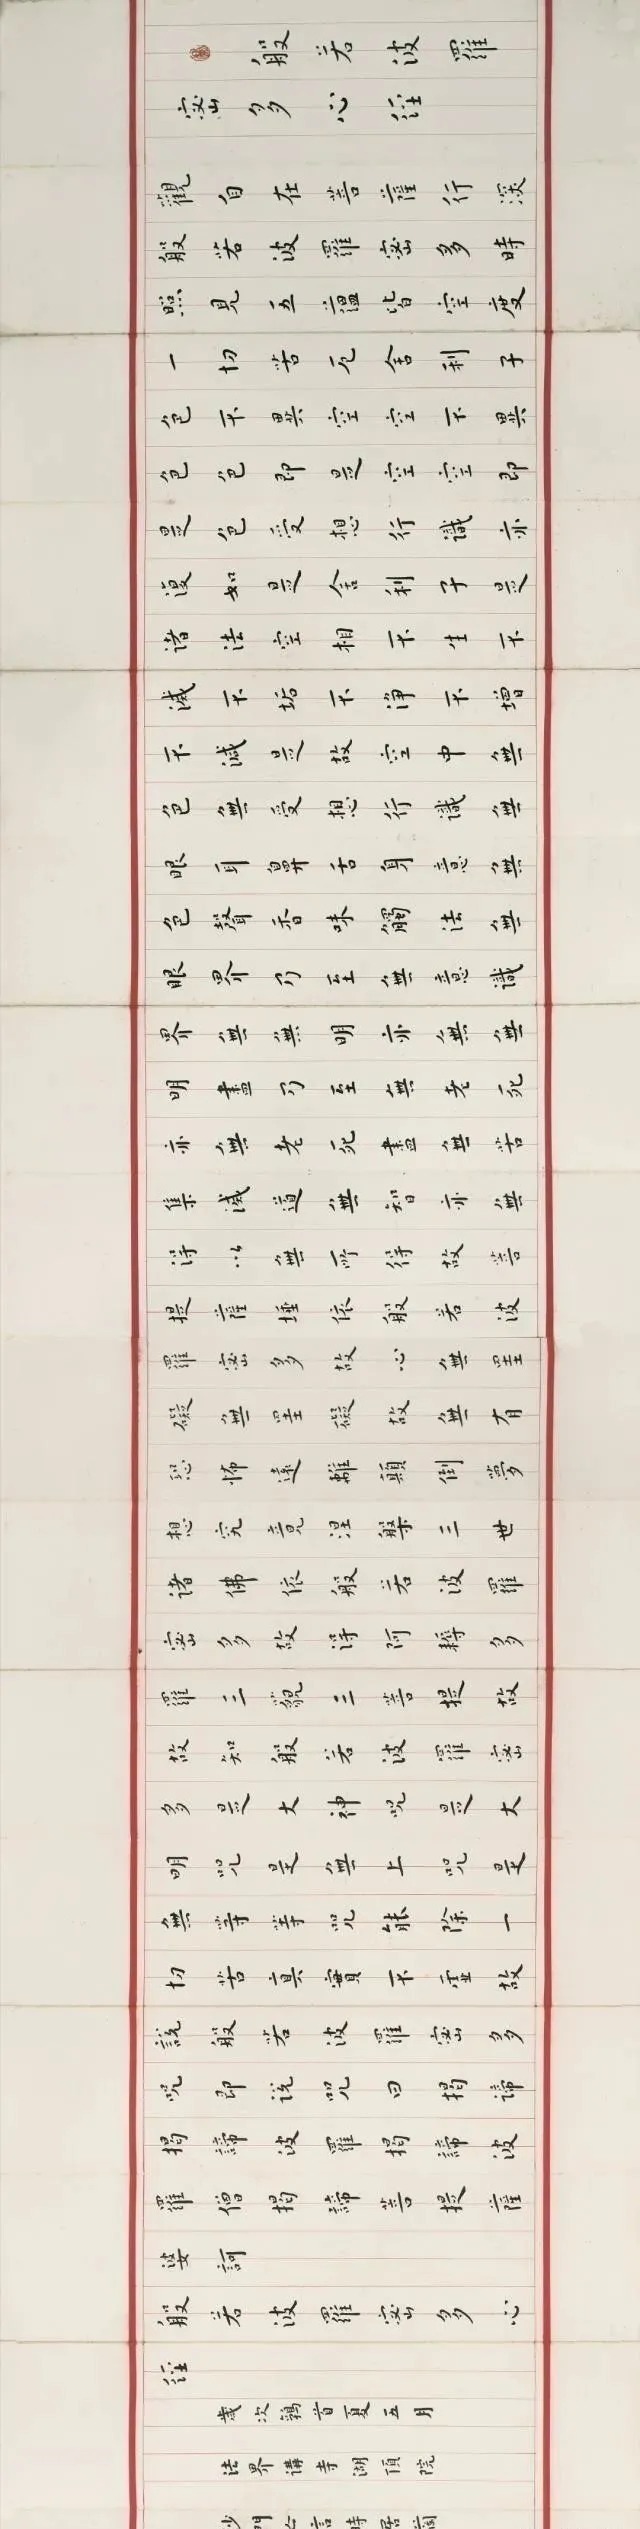 般若波羅
密多心經
觀自在菩薩行深
般若波羅密多時
照見五蘊皆空度
一切苦厄舍利子
色不異空空不異
色色即是空空即
是色受想行識亦
復如是舍利子是
諸法空相不生不
滅不垢不淨不增
不減是故空中無
色無受想行識無
眼耳鼻舌身意無
色聲香味觸法無
眼界乃至無意識
界無無明亦無無
明盡乃至無老死
亦無老死盡無苦
集滅道無智亦無
得以無所得故菩
提薩埵依般若波
羅密多故心無罣
礙無罣礙故無有
恐怖遠離顛倒夢
想究竟涅槃三世
諸佛依般若波羅
密多故得阿耨多
羅三藐三菩提故
故知般若波羅密
多是大神呪是大
明呪是無上呪是
無等等呪能除一
切苦真實不虛故
說般若波羅密多
呪即說呪曰揭諦
揭諦波羅揭諦波
羅僧揭諦菩提薩
婆訶
般若波羅密多心
經
歲次鶉首夏五月
法界講寺湖頂院
沙門